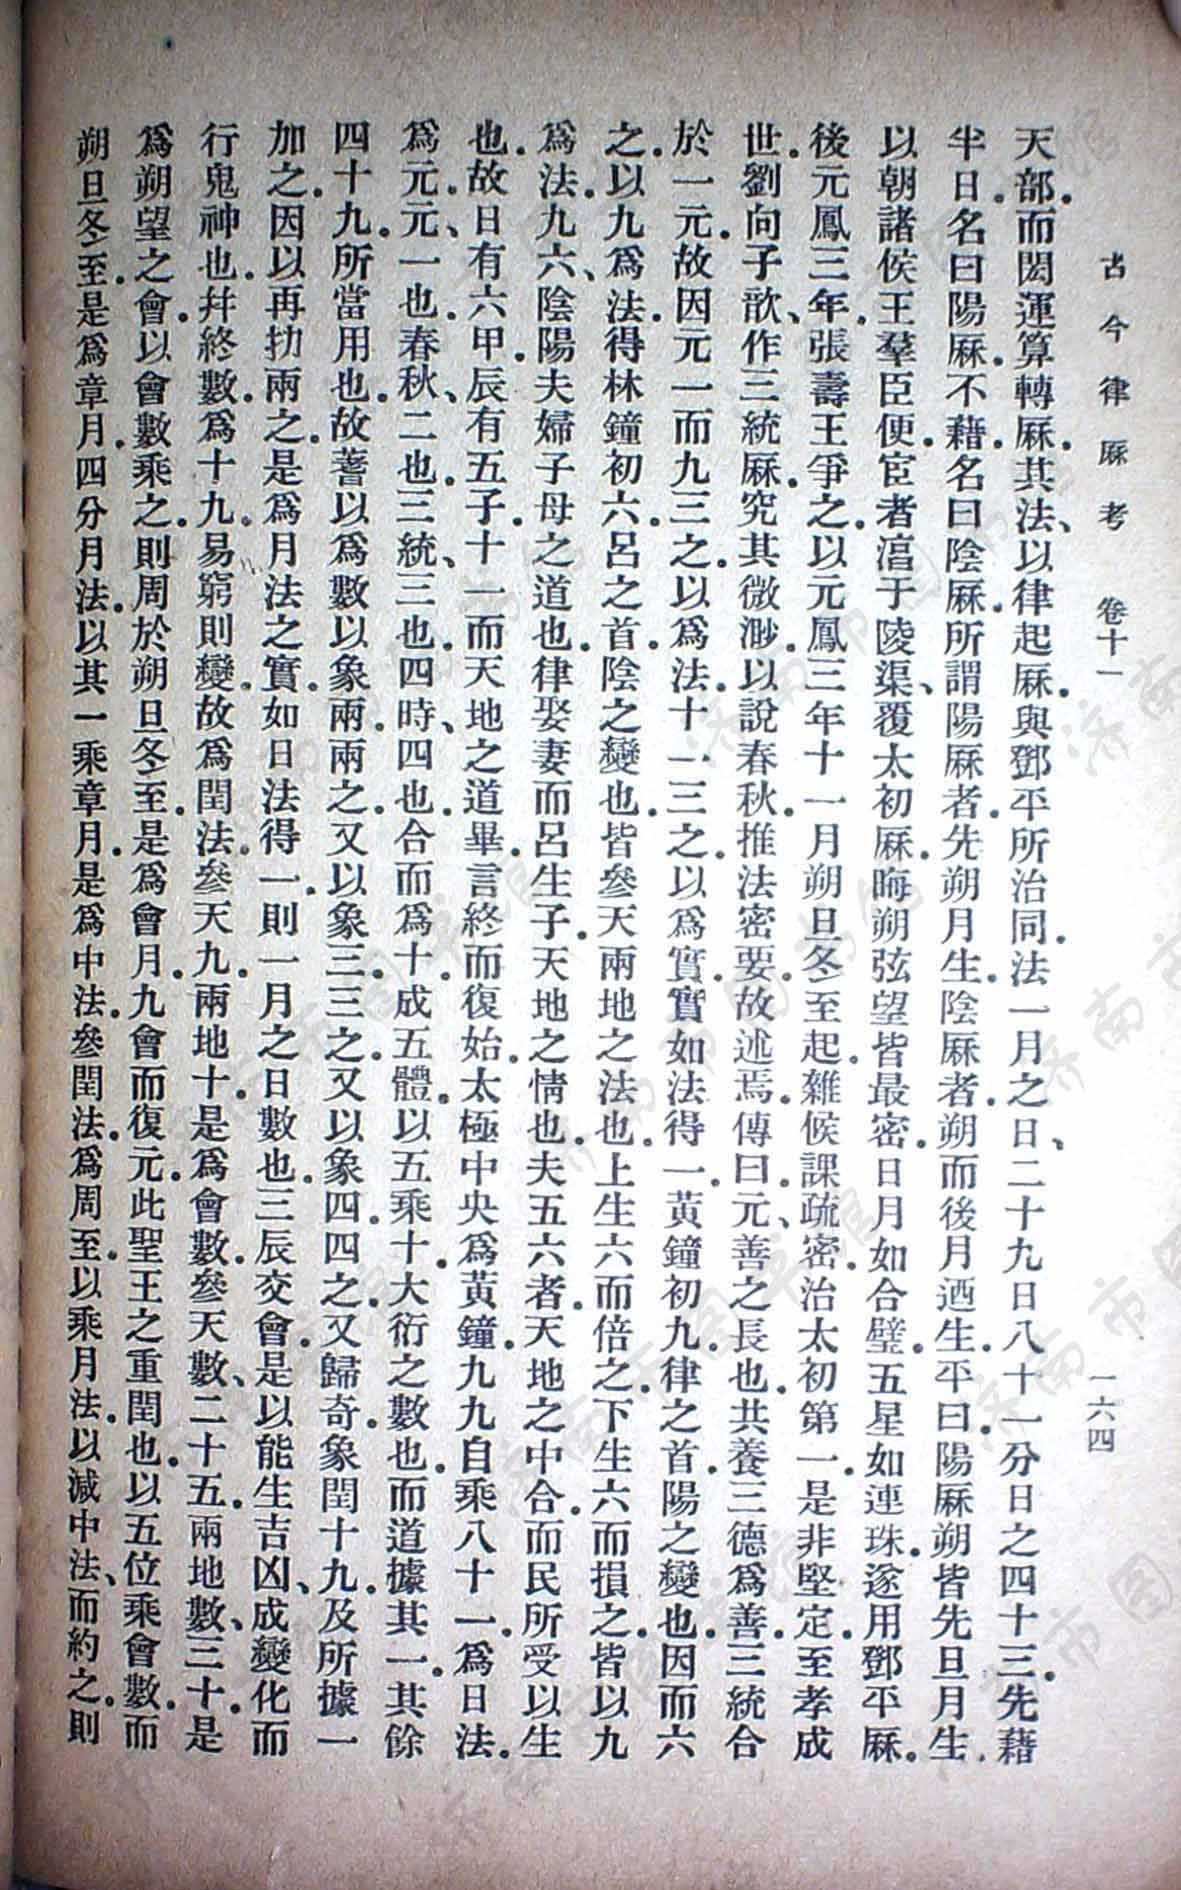 古今律厤考　卷十一　一六四
天部。而閎運算轉厤。其法、以律起厤。與鄧平所治同。法一月之日、二十九日八十一分日之四十三。先藉
半日。名曰陽厤。不藉。名曰陰厤。所謂陽厤者。先朔月生。陰厤者。朔而後月迺生。平曰。陽厤朔皆先旦月生。
以朝諸侯王羣臣便。宦者淳于陵渠、覆太初厤。晦朔弦望皆最密。日月如合璧。五星如連珠。遂用鄧平厤。
後元鳳三年。張壽王爭之。以元鳳三年十一月朔旦冬至起。雜候課疏密。治太初第一。是非堅定。至孝成
世。劉向子歆、作三統厤。究其微渺。以說春秋。推法密要。故述焉。傳曰。元、善之長也。共養三德爲善。三統合
於一元。故因元一而九三之。以爲法。十一三之。以爲實。實如法得一。黃鐘初九。律之首。陽之變也。因而六
之。以九爲法。得林鐘初六。呂之首。陰之變也。皆參天兩地之法也。上生六而倍之。下生六而損之。皆以九
爲法。九六、陰陽夫婦子母之道也。律娶妻而呂生子。天地之情也。夫五六者。天地之中合。而民所受以生
也。故日有六甲。辰有五子。十一而天地之道畢。言終而復始。太極中央爲黃鐘。九九自乘八十一。爲日法。
爲元。元、一也。春秋、二也。三統、三也。四時、四也。合而爲十。成五體。以五乘十。大衍之數也。而道據其一。其餘
四十九。所當用也。故蓍以爲數。以象兩。兩之。又以象三。三之。又以象四。四之。又歸奇。象閏十九。及所據一
加之。因以再扐兩之。是爲月法之實。如日法得一。則一月之日數也。三辰交會。是以能生吉凶、成變化。而
行鬼神也。幷終數。爲十九。易窮則變。故爲閏法。參天九。兩地十。是爲會數。參天數、二十五。兩地數、三十。是
爲朔望之會。以會數乘之。則周於朔旦冬至。是爲會月。九會而復元。此聖王之重閏也。以五位乘會數。而
朔旦冬至。是爲章月。四分月法。以其一乘章月。是爲中法。參閏法。爲周至。以乘月法。以減中法、而約之。則